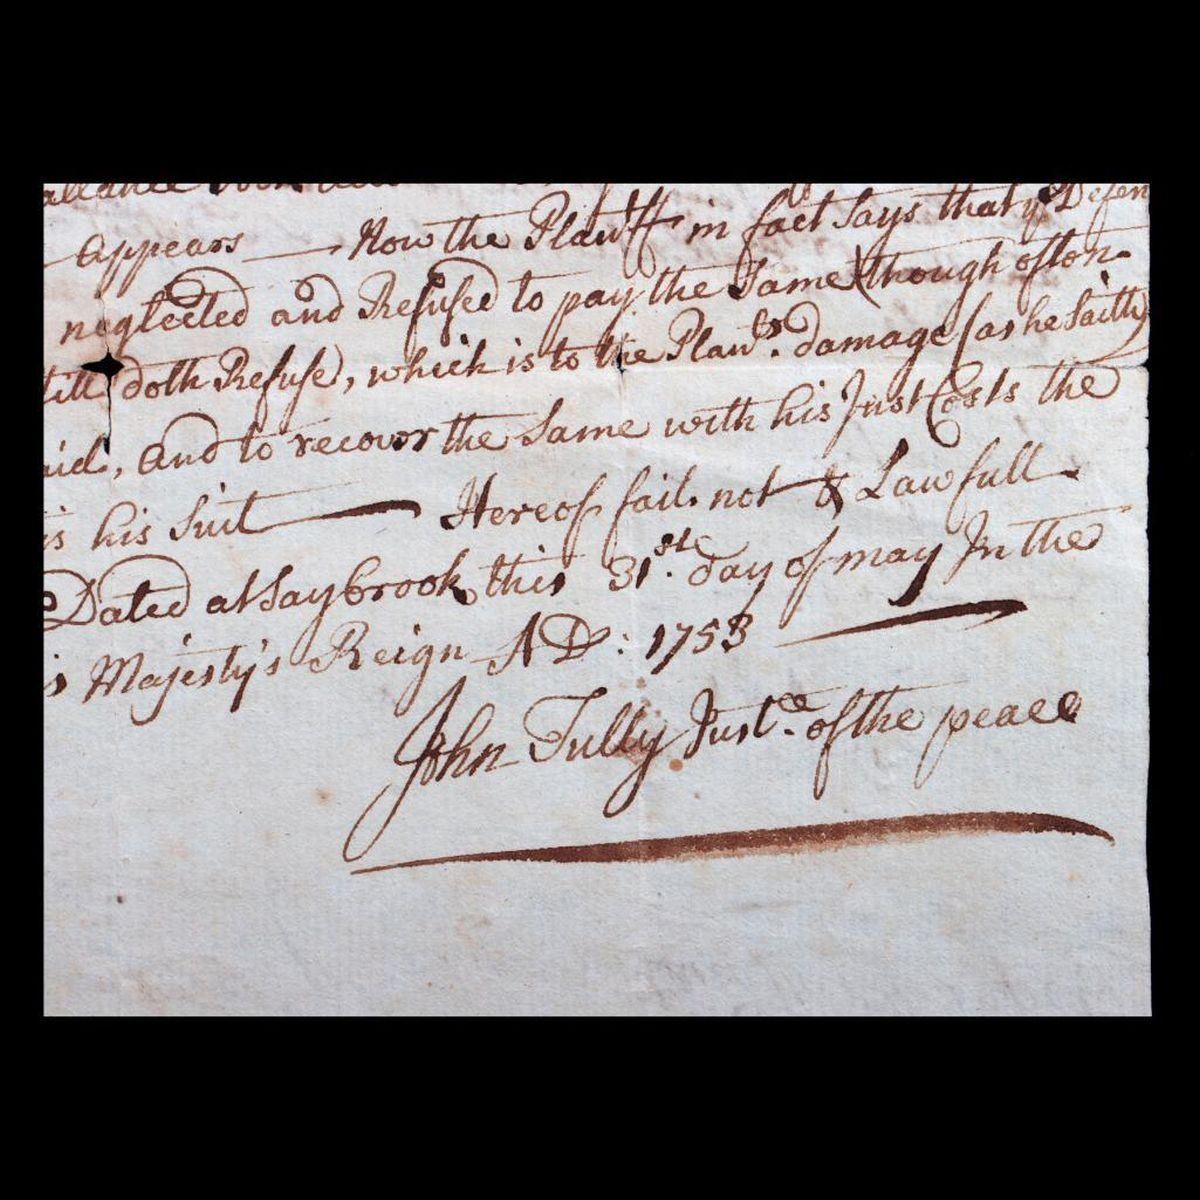 Appears — Now the Plantff in fact Says that ye Defen
neglected and Refused to pay the Same (though often
till doth Refuse), which is to the Plants. damage (as he Saith)
aid, and to recover the Same with his Just Costs the
is his Suit — Hereof fail not & Lawfull
Dated at Saybrook this 31.st day of may In the
s Majesty's Reign AD: 1753 —
John Tully Just.e of the peace